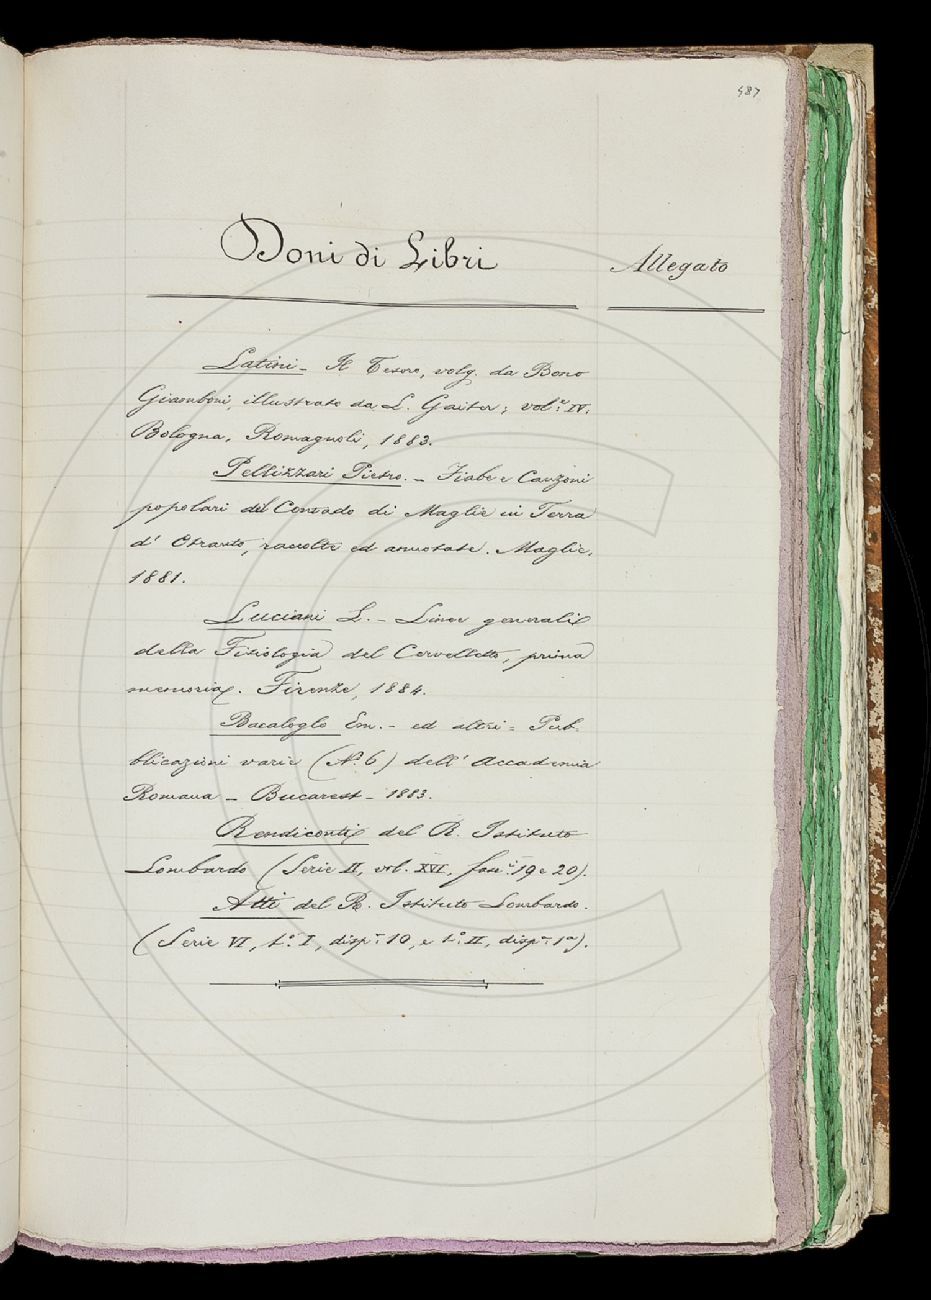 487
Doni di Libri
Allegato
Latini - Il Tesoro, volg. da Bono
Giamboni, illustrato da L. Gaiter; vol.e IV.
Bologna, Romagnoli, 1883.
Pellizzari Pietro. - Fiabe e Canzoni
popolari del Contado di Maglie in Terra
d' Otranto, raccolte ed annotate. Maglie,
1881.
Luciani L. - Linee generali
della Fisiologia del Cervelletto, prima
memoria. Firenze, 1884.
Bacaloglo Em. - ed altri = Pub-
blicazioni varie (N.º 6) dell' Accademia
Romana - Bucarest - 1883.
Rendiconti del R. Istituto
Lombardo (Serie II, vol. XVI, fasc.i 19 e 20).
Atti del R. Istituto Lombardo.
(Serie VI, t.º I, disp.ª 10, e t.º II, disp.ª 1ª).